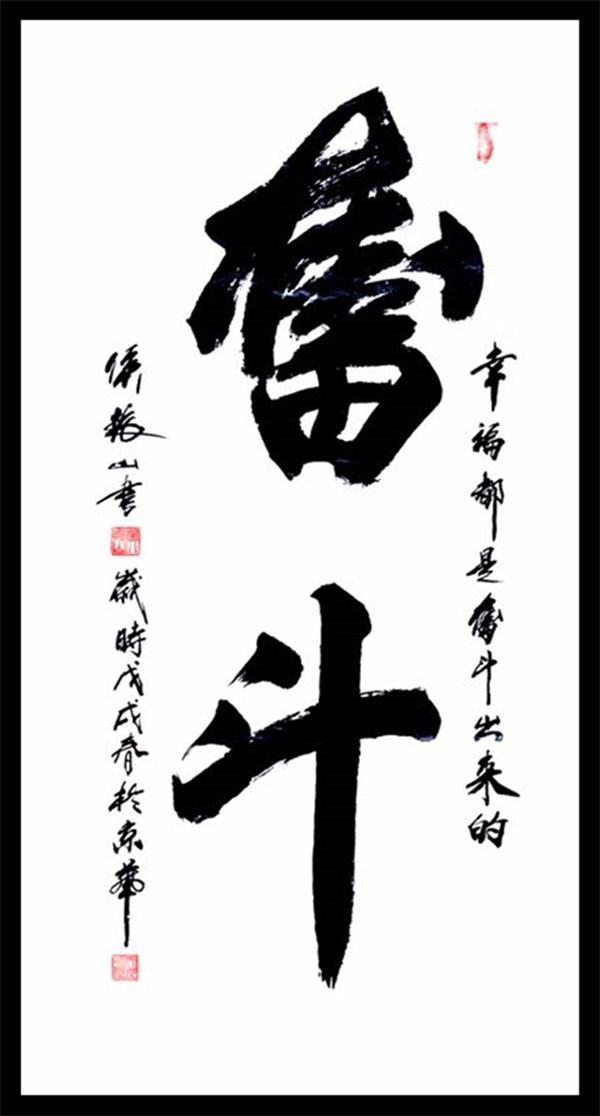 幸福都是奮斗出来的
奮斗
山書 歲時戊戌春於京華